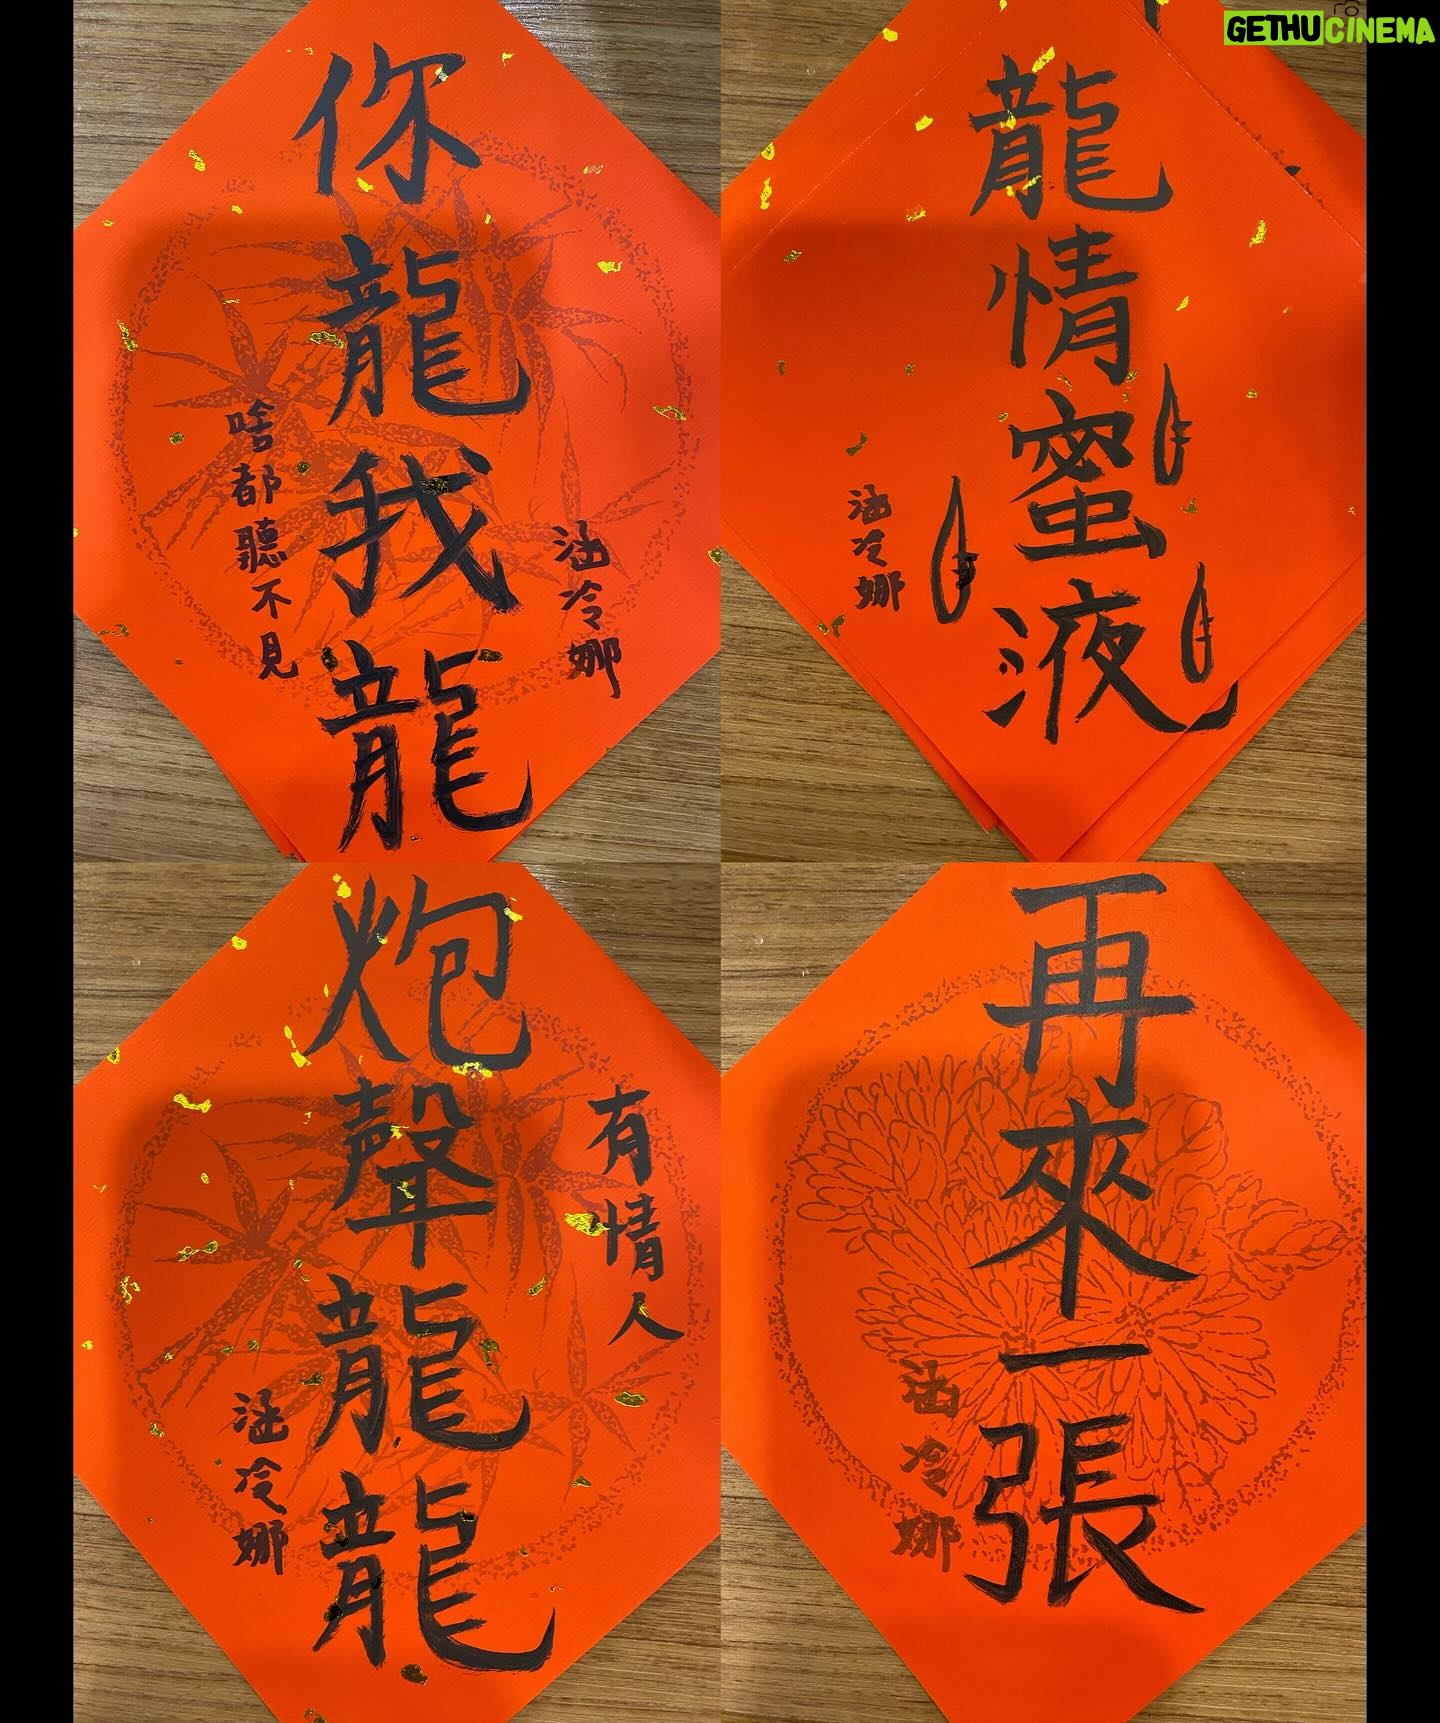 GETHUCINEMA
你龍我龍
啥都聽不見
涵冷娜
龍情蜜液
涵冷娜
炮聲龍龍
有情人
涵冷娜
再來一張
涵冷娜